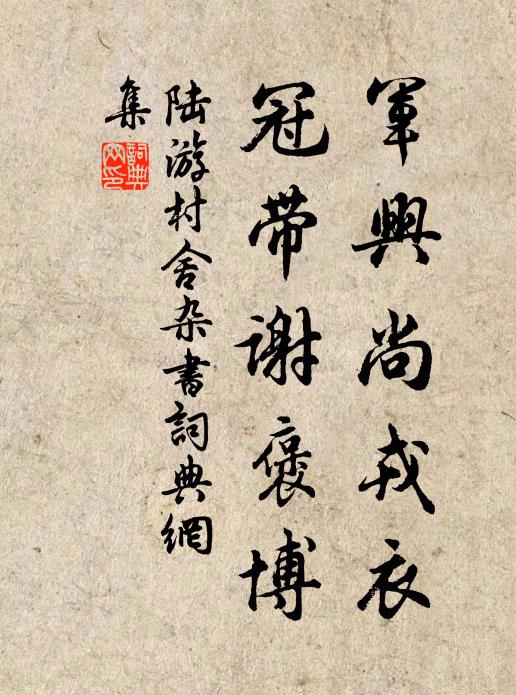 軍興尚戎衣
冠帶謝褒博
陆游村舍杂書詞典網
集
詞典網印